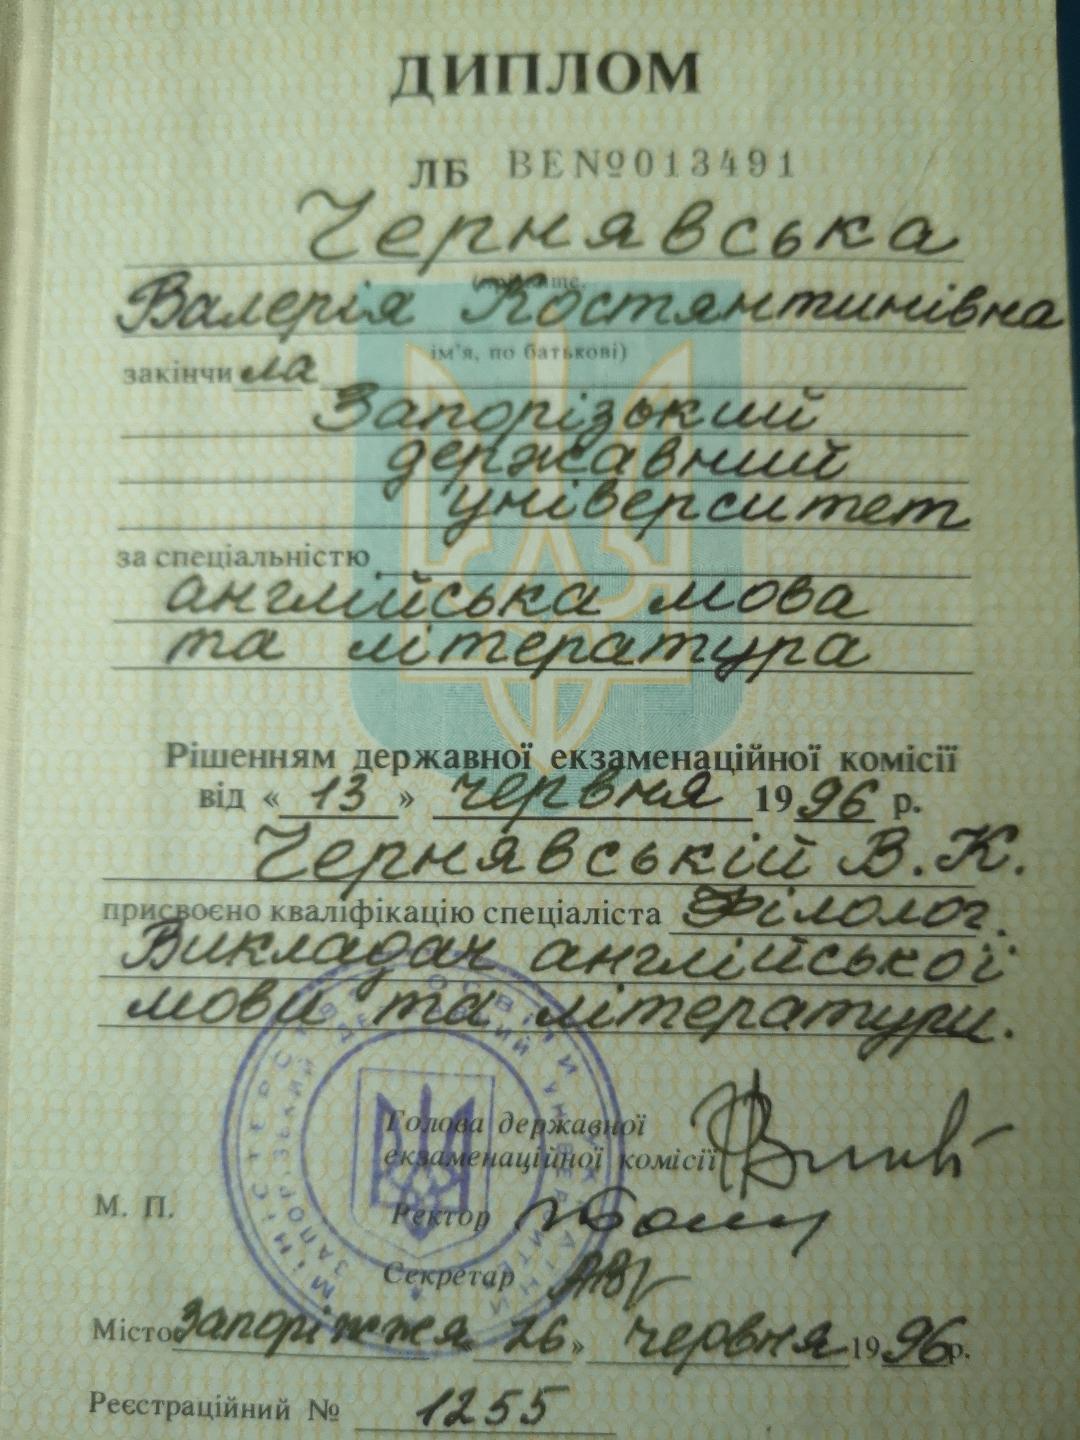 ДИПЛОМ
ЛБ ВЕ№013491
Чернявська
(прізвище,
Валерія Костянтинівна
ім'я, по батькові)
закінчила
Запорізький
державний
університет
за спеціальністю
англійська мова
та література
Рішенням державної екзаменаційної комісії
від « 13 » червня 1996 р.
Чернявській В. К.
присвоєно кваліфікацію спеціаліста Філолог.
Викладач англійської
мови та літератури.
Голова державної
екзаменаційної комісії
М. П.
Ректор
Секретар
Місто Запоріжжя « 26 » червня 1996 р.
Реєстраційний № 1255
МІНІСТЕРСТВО ОСВІТИ УКРАЇНИ
ЗАПОРІЗЬКИЙ ДЕРЖАВНИЙ УНІВЕРСИТЕТ